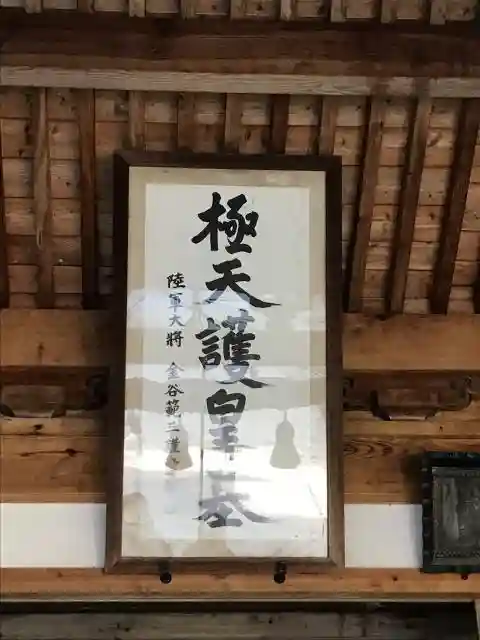 極天護皇基
陸軍大将 金谷範三謹